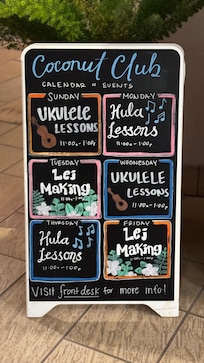 Coconut Club
CALENDAR OF EVENTS
SUNDAY
UKULELE
LESSONS
11:00a-1:00p
MONDAY
Hula
Lessons
11:00a-1:00p
TUESDAY
Lei
Making
11:00a-1:00p
WEDNESDAY
UKULELE
LESSONS
11:00a-1:00p
THURSDAY
Hula
Lessons
11:00a-1:00p
FRIDAY
Lei
Making
VISIT front desk for more info!